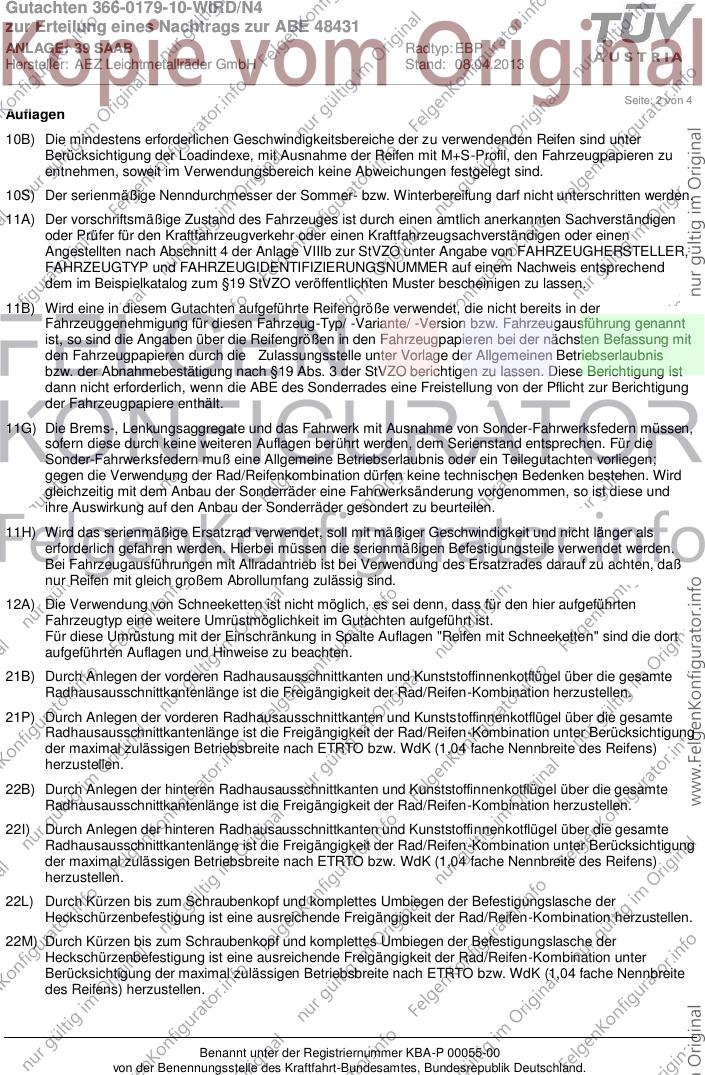 Gutachten 366-0179-10-WIRD/N4
zur Erteilung eines Nachtrags zur ABE 48431
ANLAGE: 39 SAAB Radtyp: EBP
Hersteller: AEZ Leichtmetallräder GmbH Stand: 08.04.2013
TÜV
AUSTRIA
Kopie vom Original
Seite: 2 von 4
Auflagen
10B) Die mindestens erforderlichen Geschwindigkeitsbereiche der zu verwendenden Reifen sind unter
Berücksichtigung der Loadindexe, mit Ausnahme der Reifen mit M+S-Profil, den Fahrzeugpapieren zu
entnehmen, soweit im Verwendungsbereich keine Abweichungen festgelegt sind.
10S) Der serienmäßige Nenndurchmesser der Sommer- bzw. Winterbereifung darf nicht unterschritten werden.
11A) Der vorschriftsmäßige Zustand des Fahrzeuges ist durch einen amtlich anerkannten Sachverständigen
oder Prüfer für den Kraftfahrzeugverkehr oder einen Kraftfahrzeugsachverständigen oder einen
Angestellten nach Abschnitt 4 der Anlage VIIIb zur StVZO unter Angabe von FAHRZEUGHERSTELLER,
FAHRZEUGTYP und FAHRZEUGIDENTIFIZIERUNGSNUMMER auf einem Nachweis entsprechend
dem im Beispielkatalog zum §19 StVZO veröffentlichten Muster bescheinigen zu lassen.
11B) Wird eine in diesem Gutachten aufgeführte Reifengröße verwendet, die nicht bereits in der
Fahrzeuggenehmigung für diesen Fahrzeug-Typ/ -Variante/ -Version bzw. Fahrzeugausführung genannt
ist, so sind die Angaben über die Reifengrößen in den Fahrzeugpapieren bei der nächsten Befassung mit
den Fahrzeugpapieren durch die Zulassungsstelle unter Vorlage der Allgemeinen Betriebserlaubnis
bzw. der Abnahmebestätigung nach §19 Abs. 3 der StVZO berichtigen zu lassen. Diese Berichtigung ist
dann nicht erforderlich, wenn die ABE des Sonderrades eine Freistellung von der Pflicht zur Berichtigung
der Fahrzeugpapiere enthält.
11G) Die Brems-, Lenkungsaggregate und das Fahrwerk mit Ausnahme von Sonder-Fahrwerksfedern müssen,
sofern diese durch keine weiteren Auflagen berührt werden, dem Serienstand entsprechen. Für die
Sonder-Fahrwerksfedern muß eine Allgemeine Betriebserlaubnis oder ein Teilegutachten vorliegen;
gegen die Verwendung der Rad/Reifenkombination dürfen keine technischen Bedenken bestehen. Wird
gleichzeitig mit dem Anbau der Sonderräder eine Fahrwerksänderung vorgenommen, so ist diese und
ihre Auswirkung auf den Anbau der Sonderräder gesondert zu beurteilen.
11H) Wird das serienmäßige Ersatzrad verwendet, soll mit mäßiger Geschwindigkeit und nicht länger als
erforderlich gefahren werden. Herbei müssen die serienmäßigen Befestigungsteile verwendet werden.
Bei Fahrzeugausführungen mit Allradantrieb ist bei Verwendung des Ersatzrades darauf zu achten, daß
nur Reifen mit gleich großem Abrollumfang zulässig sind.
12A) Die Verwendung von Schneeketten ist nicht möglich, es sei denn, dass für den hier aufgeführten
Fahrzeugtyp eine weitere Umrüstmöglichkeit im Gutachten aufgeführt ist.
Für diese Umrüstung mit der Einschränkung in Spalte Auflagen "Reifen mit Schneeketten" sind die dort
aufgeführten Auflagen und Hinweise zu beachten.
21B) Durch Anlegen der vorderen Radhausausschnittkanten und Kunststoffinnenkotflügel über die gesamte
Radhausausschnittkantenlänge ist die Freigängigkeit der Rad/Reifen-Kombination herzustellen.
21P) Durch Anlegen der vorderen Radhausausschnittkanten und Kunststoffinnenkotflügel über die gesamte
Radhausausschnittkantenlänge ist die Freigängigkeit der Rad/Reifen-Kombination unter Berücksichtigung
der maximal zulässigen Betriebsbreite nach ETRTO bzw. WdK (1,04 fache Nennbreite des Reifens)
herzustellen.
22B) Durch Anlegen der hinteren Radhausausschnittkanten und Kunststoffinnenkotflügel über die gesamte
Radhausausschnittkantenlänge ist die Freigängigkeit der Rad/Reifen-Kombination herzustellen.
22I) Durch Anlegen der hinteren Radhausausschnittkanten und Kunststoffinnenkotflügel über die gesamte
Radhausausschnittkantenlänge ist die Freigängigkeit der Rad/Reifen-Kombination unter Berücksichtigung
der maximal zulässigen Betriebsbreite nach ETRTO bzw. WdK (1,04 fache Nennbreite des Reifens)
herzustellen.
22L) Durch Kürzen bis zum Schraubenkopf und komplettes Umbiegen der Befestigungslasche der
Heckschürzenbefestigung ist eine ausreichende Freigängigkeit der Rad/Reifen-Kombination herzustellen.
22M) Durch Kürzen bis zum Schraubenkopf und komplettes Umbiegen der Befestigungslasche der
Heckschürzenbefestigung ist eine ausreichende Freigängigkeit der Rad/Reifen-Kombination unter
Berücksichtigung der maximal zulässigen Betriebsbreite nach ETRTO bzw. WdK (1,04 fache Nennbreite
des Reifens) herzustellen.
FELGEN
KONFIGURATOR
FelgenKonfigurator.info
nur gültig im Original
www.FelgenKonfigurator.info
Benannt unter der Registriernummer KBA-P 00055-00
von der Benennungsstelle des Kraftfahrt-Bundesamtes, Bundesrepublik Deutschland.